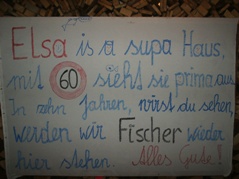 Elsa is a supa Haus,
mit 60 sieht sie prima aus.
In zehn Jahren, wirst du sehen,
werden wir Fischer wieder
hier stehen. Alles Gute!